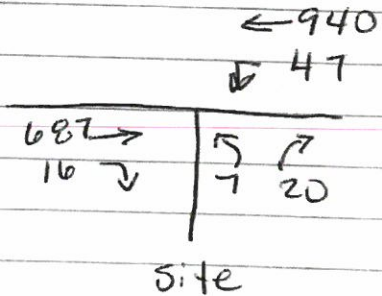 ←940
47
687→
16 7 20
site